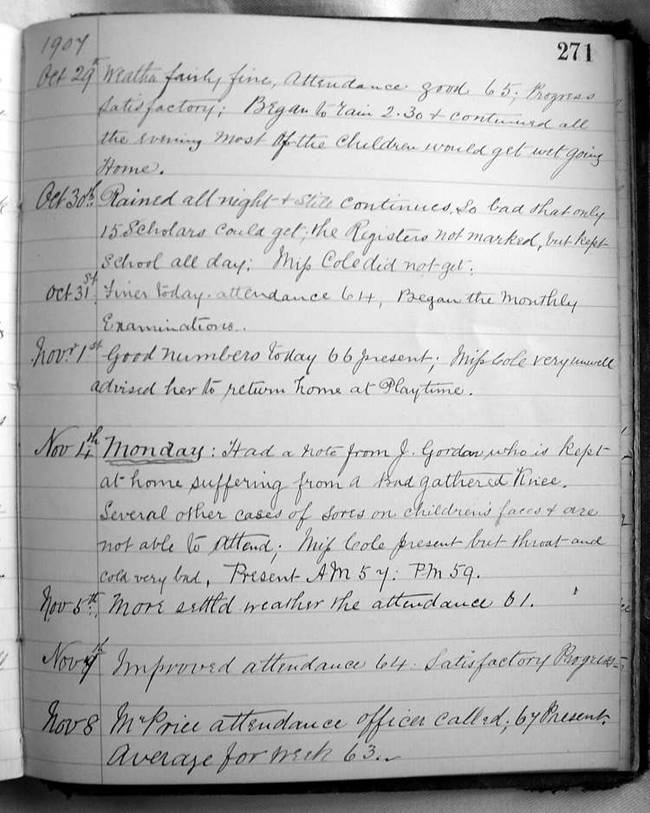 1907
271
Oct 29th Weather fairly fine, Attendance good 65; Progress
satisfactory; Began to rain 2.30 & continued all
the evening most of the children would get wet going
Home.
Oct 30th Rained all night & still continues, So bad that only
15 Scholars could get; the Registers not marked, but kept
School all day; Miss Cole did not get.
Oct 31st Finer today. attendance 64, Began the Monthly
Examinations.
Novr 1st Good numbers today 66 present; Miss Cole very unwell
advised her to return home at Playtime.
Nov 4th Monday: Had a note from J. Gordon who is kept
at home suffering from a bad gathered Knee.
Several other cases of sores on children's faces & are
not able to attend; Miss Cole present but throat and
cold very bad, Present AM 57: PM 59.
Nov 5th, More settld weather the attendance 61.
Nov 7th Improved attendance 64. Satisfactory Progress
Nov 8 Mr Price attendance officer called; 67 Present.
Average for week 63.